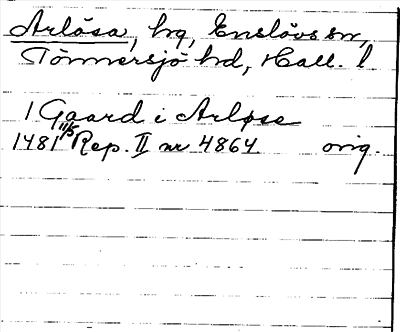 Arlösa, hg, Enslövs sn,
Tönnersjö hd, Hall. l
1 Gaard i Arløse
1481 11/5 Rep. II nr 4864 orig.